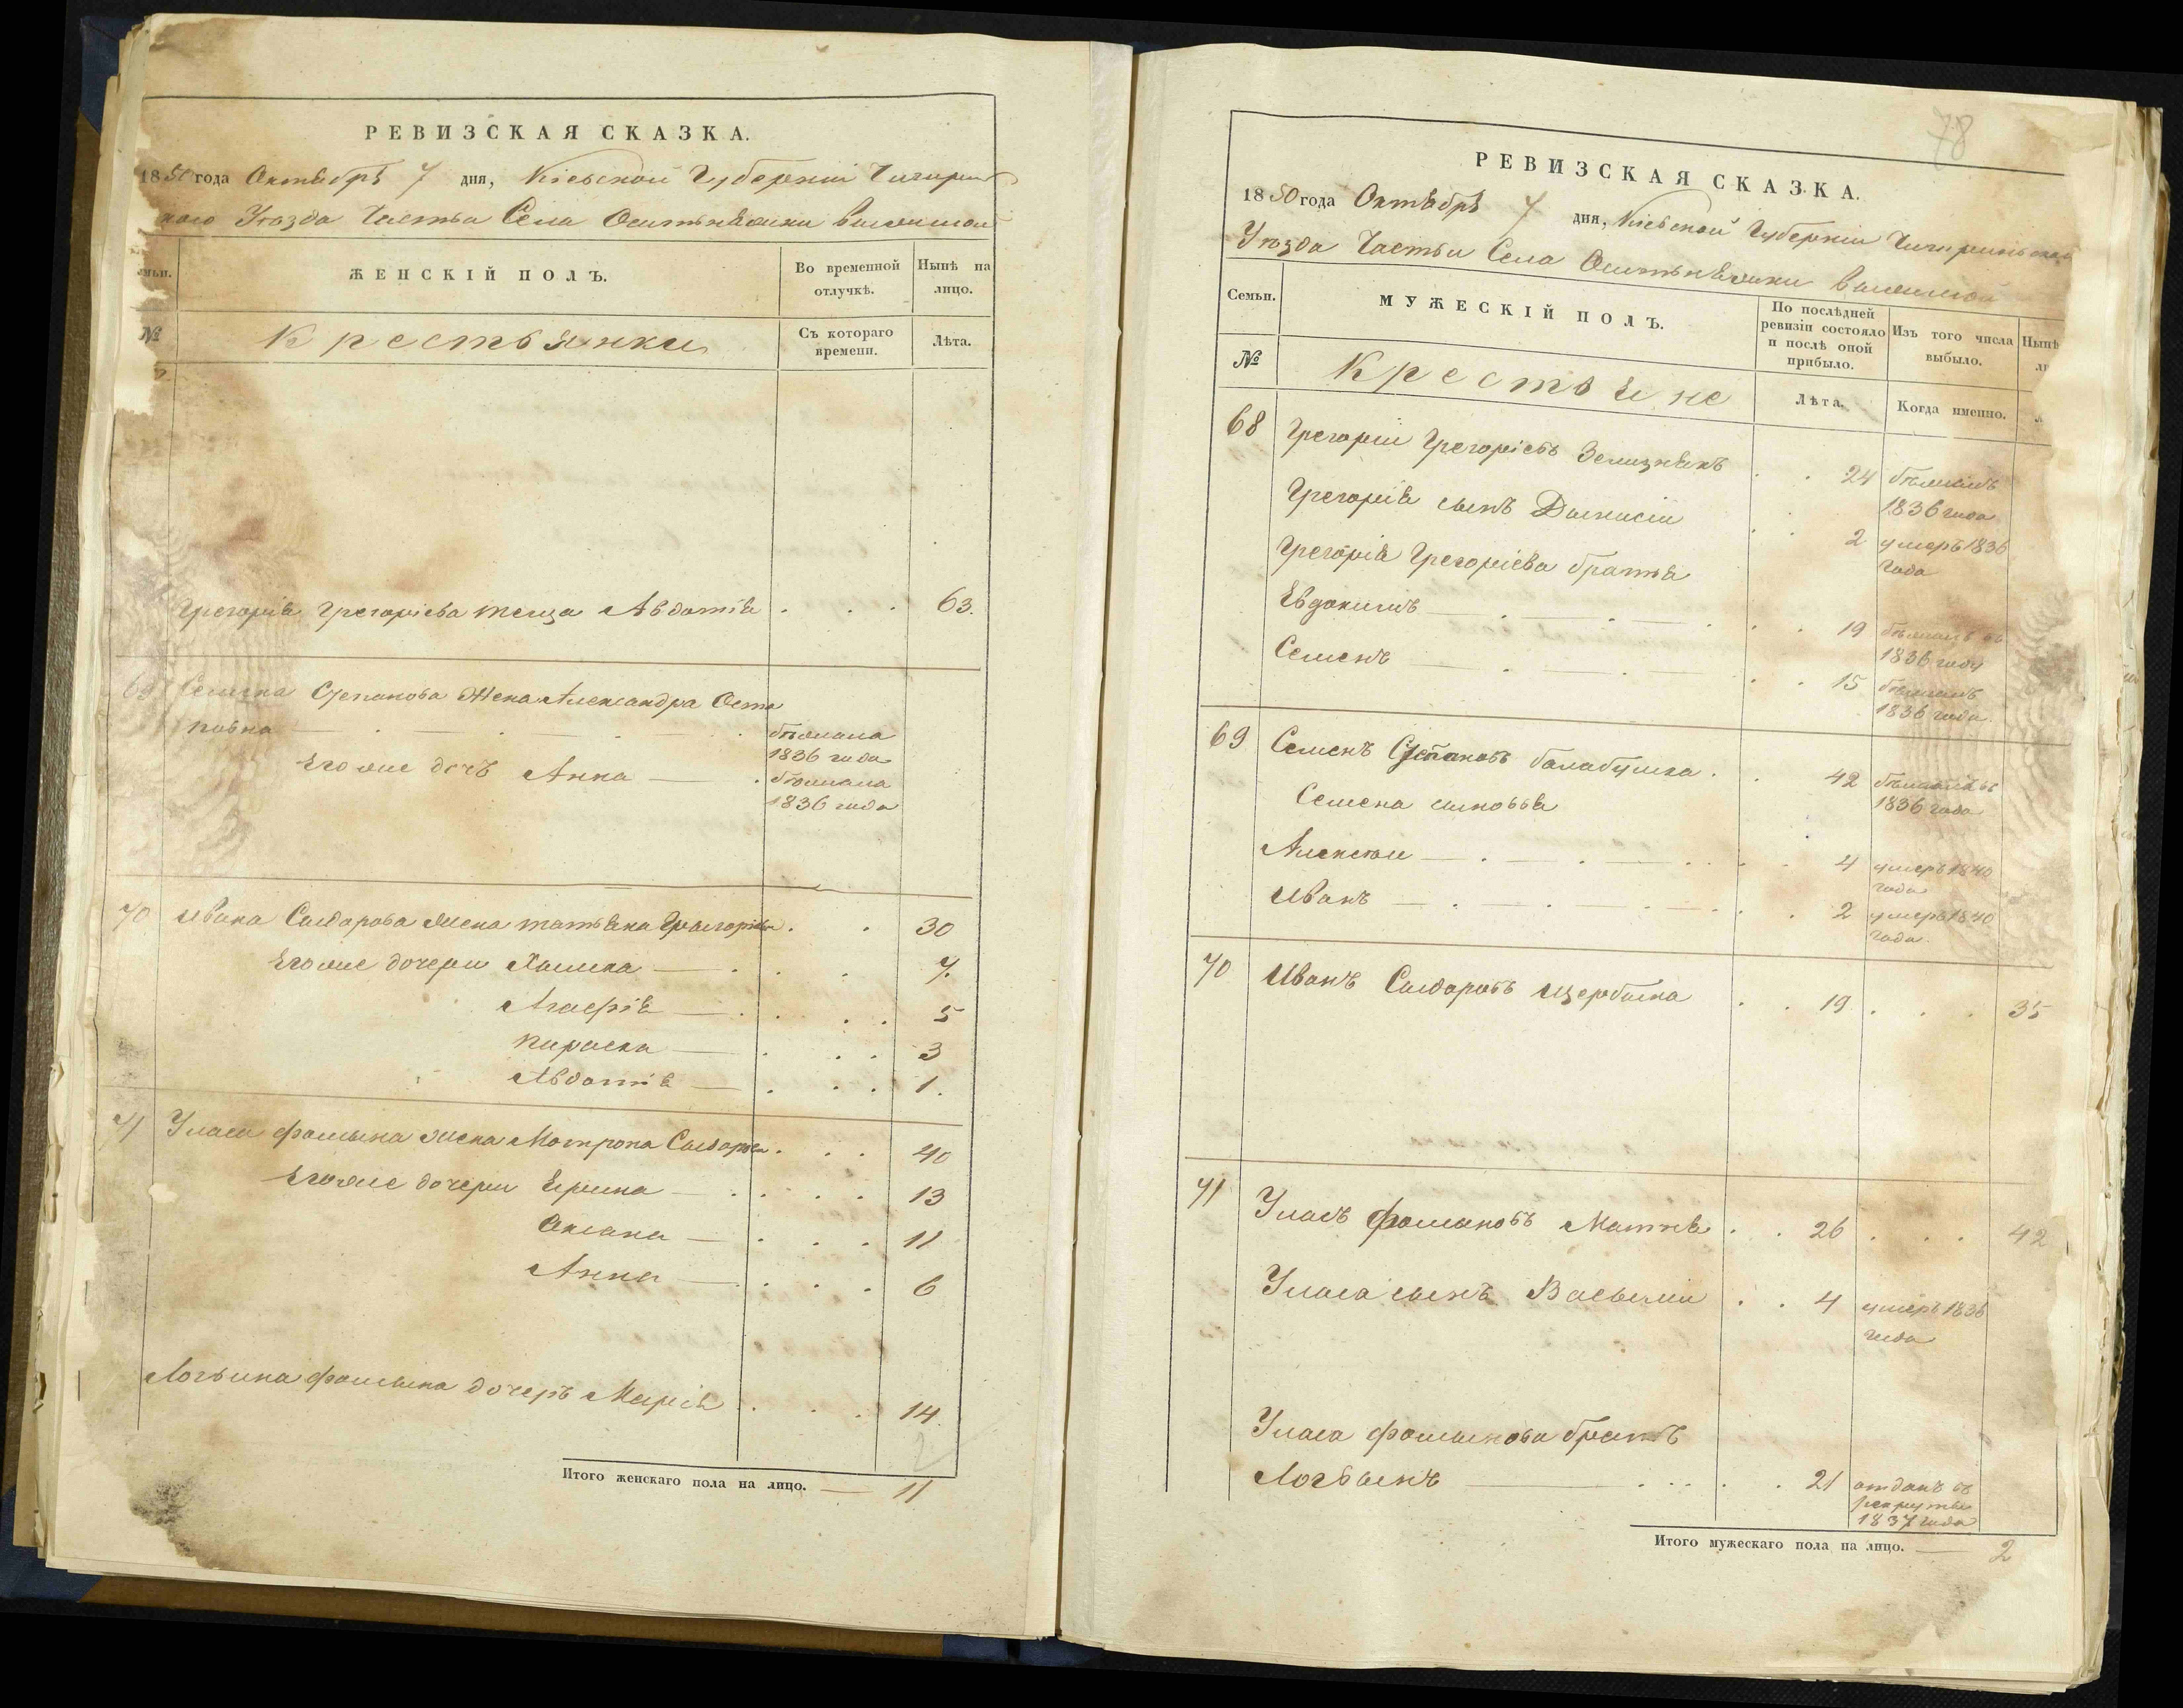 РЕВИЗСКАЯ СКАЗКА.
1850 года Октября 7 дня, Кіевской Губерніи Чигирин
кого Уѣзда Части Села Оситняжки
ЖЕНСКІЙ ПОЛЪ.
Во временной отлучкѣ.
Нынѣ на лицо.
№
Крестьянки
Съ котораго времени.
Лѣта.
Грегорія Грегоріева теща Авдотія . . . 63.
69 Семена Степанова Жена Александра Оста
повна бѣжала 1836 года
Его же дочъ Анна бѣжала 1836 года
70 Ивана Сидорова жена татьяна . . 30
Его же дочери Химка 7.
Агафія 5
Параска 3
Авдотія 1.
71 Уласа фомына жена Мотрона . . . 40
Его же дочери Ерина 13
Оксана 11
Анна 6
Логвина фомына дочеръ Марія . . . 14.
2
Итого женскаго пола на лицо. — 11
78
РЕВИЗСКАЯ СКАЗКА.
1850 года Октября 7 дня, Кіевской Губерніи
Уѣзда Части Села Оситняжки
Семьи.
МУЖЕСКІЙ ПОЛЪ.
По послѣдней ревизіи состояло и послѣ оной прибыло.
Изъ того числа выбыло.
Нынѣ
№
Крестьяне
Лѣта.
Когда именно.
68 Грегорій Грегоріевъ Зелизнякъ . . 24 бѣжалъ 1836 года
Грегорія сынъ Дыкисій . . 2 умеръ 1836 года
Грегорія Грегоріева братья
Евдокимъ . . 19 бѣжалъ въ 1836 году
Семенъ . . 15 бѣжалъ 1836 года
69 Семенъ Степановъ балабушка . . 42 бѣжалъ въ 1836 года
Семена сыновья
Алексѣй 4 умеръ 1840 года
Иванъ 2 умеръ 1840 года.
70 Иванъ Сидоровъ Щербына . . 19 . . . 35
71 Уласъ фомыновъ . . 26 . . . 42
Уласа сынъ Васылій . . 4 умеръ 1836 года
Уласа фомынова братъ
Логвынъ . . 21 отданъ въ рекруты 1837 года
Итого мужескаго пола на лицо. — 2